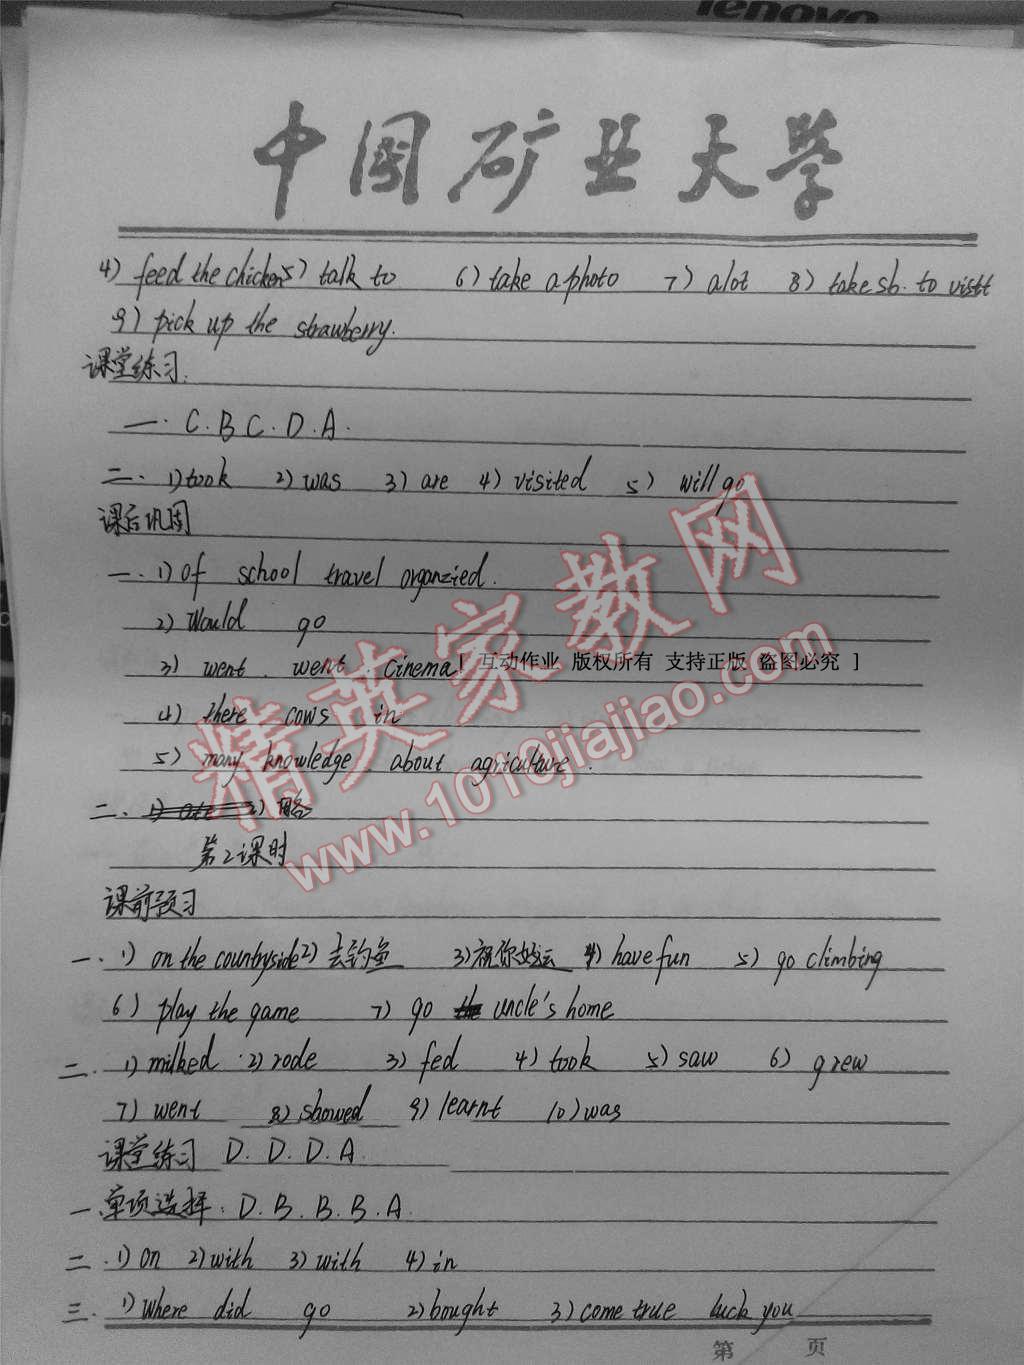 lenovo
中国矿业大学
4) feed the chicken 5) talk to 6) take a photo 7) a lot 8) take sb. to visit
9) pick up the strawberry.
课堂练习.
一. C. B C. D. A.
二. 1) took 2) was 3) are 4) visited 5) will go
课后巩固
一. 1) Of school travel organzied.
2) Would go
3) went . went . cinema [ 互动作业 版权所有 支持正版 盗图必究 ]
4) there cows in
5) many knowledge about agriculture.
二. 1) ate 2) 略
第2课时
课前预习
一. 1) on the countryside 2) 去钓鱼 3) 祝你好运 4) have fun 5) go climbing
6) play the game 7) go the uncle's home
二. 1) milked 2) rode 3) fed 4) took 5) saw 6) grew
7) went 8) showed 9) learnt 10) was
课堂练习 D. D. D. A.
一.单项选择. D. B. B. B. A.
二. 1) on 2) with 3) with 4) in
三. 1) Where did go 2) bought 3) come true luck you
第 页
精英家教网
www.1010jiajiao.com